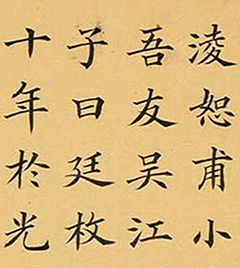 淩恕甫小
吾友吴江
子曰廷枚
十年於光